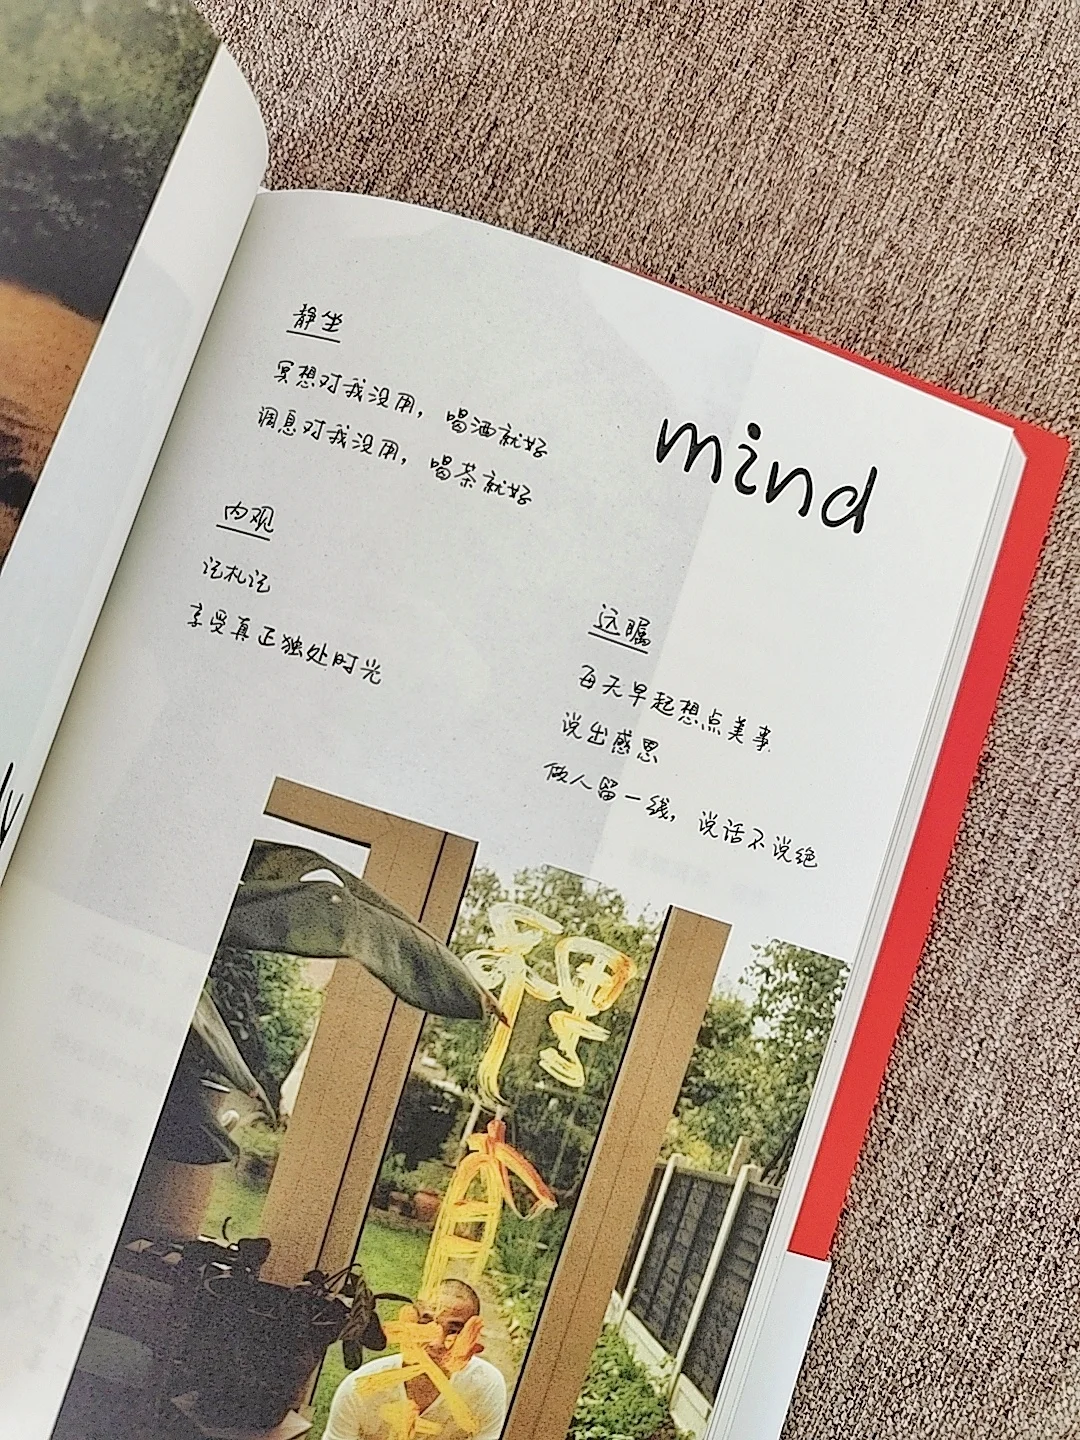 mind
静坐
冥想对我没用，喝酒就好
调息对我没用，喝茶就好
内观
记札记
享受真正独处时光
远瞩
每天早起想点美事
说出感恩
做人留一线，说话不说绝